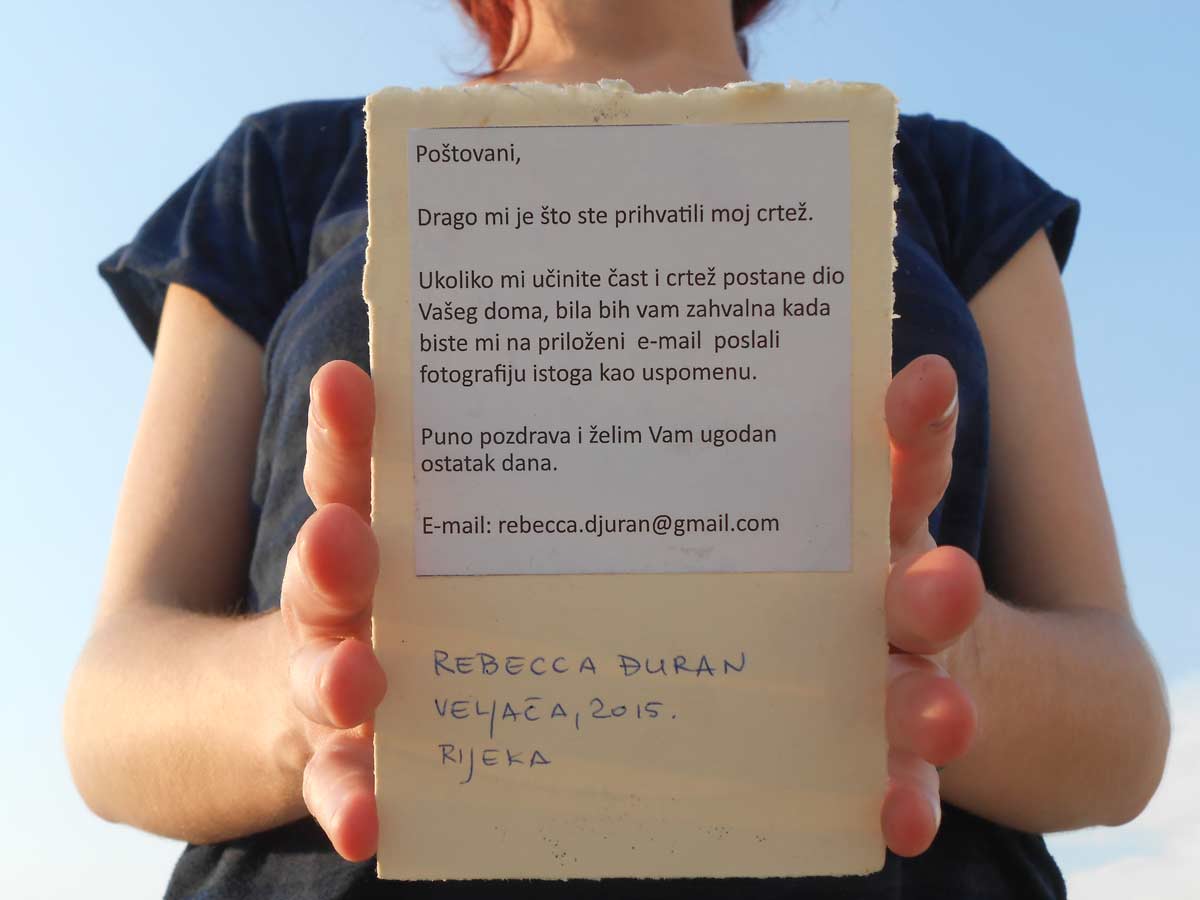 Poštovani,
Drago mi je što ste prihvatili moj crtež.
Ukoliko mi učinite čast i crtež postane dio
Vašeg doma, bila bih vam zahvalna kada
biste mi na priloženi e-mail poslali
fotografiju istoga kao uspomenu.
Puno pozdrava i želim Vam ugodan
ostatak dana.
E-mail: rebecca.djuran@gmail.com
REBECCA ĐURAN
VELJAČA, 2015.
RIJEKA